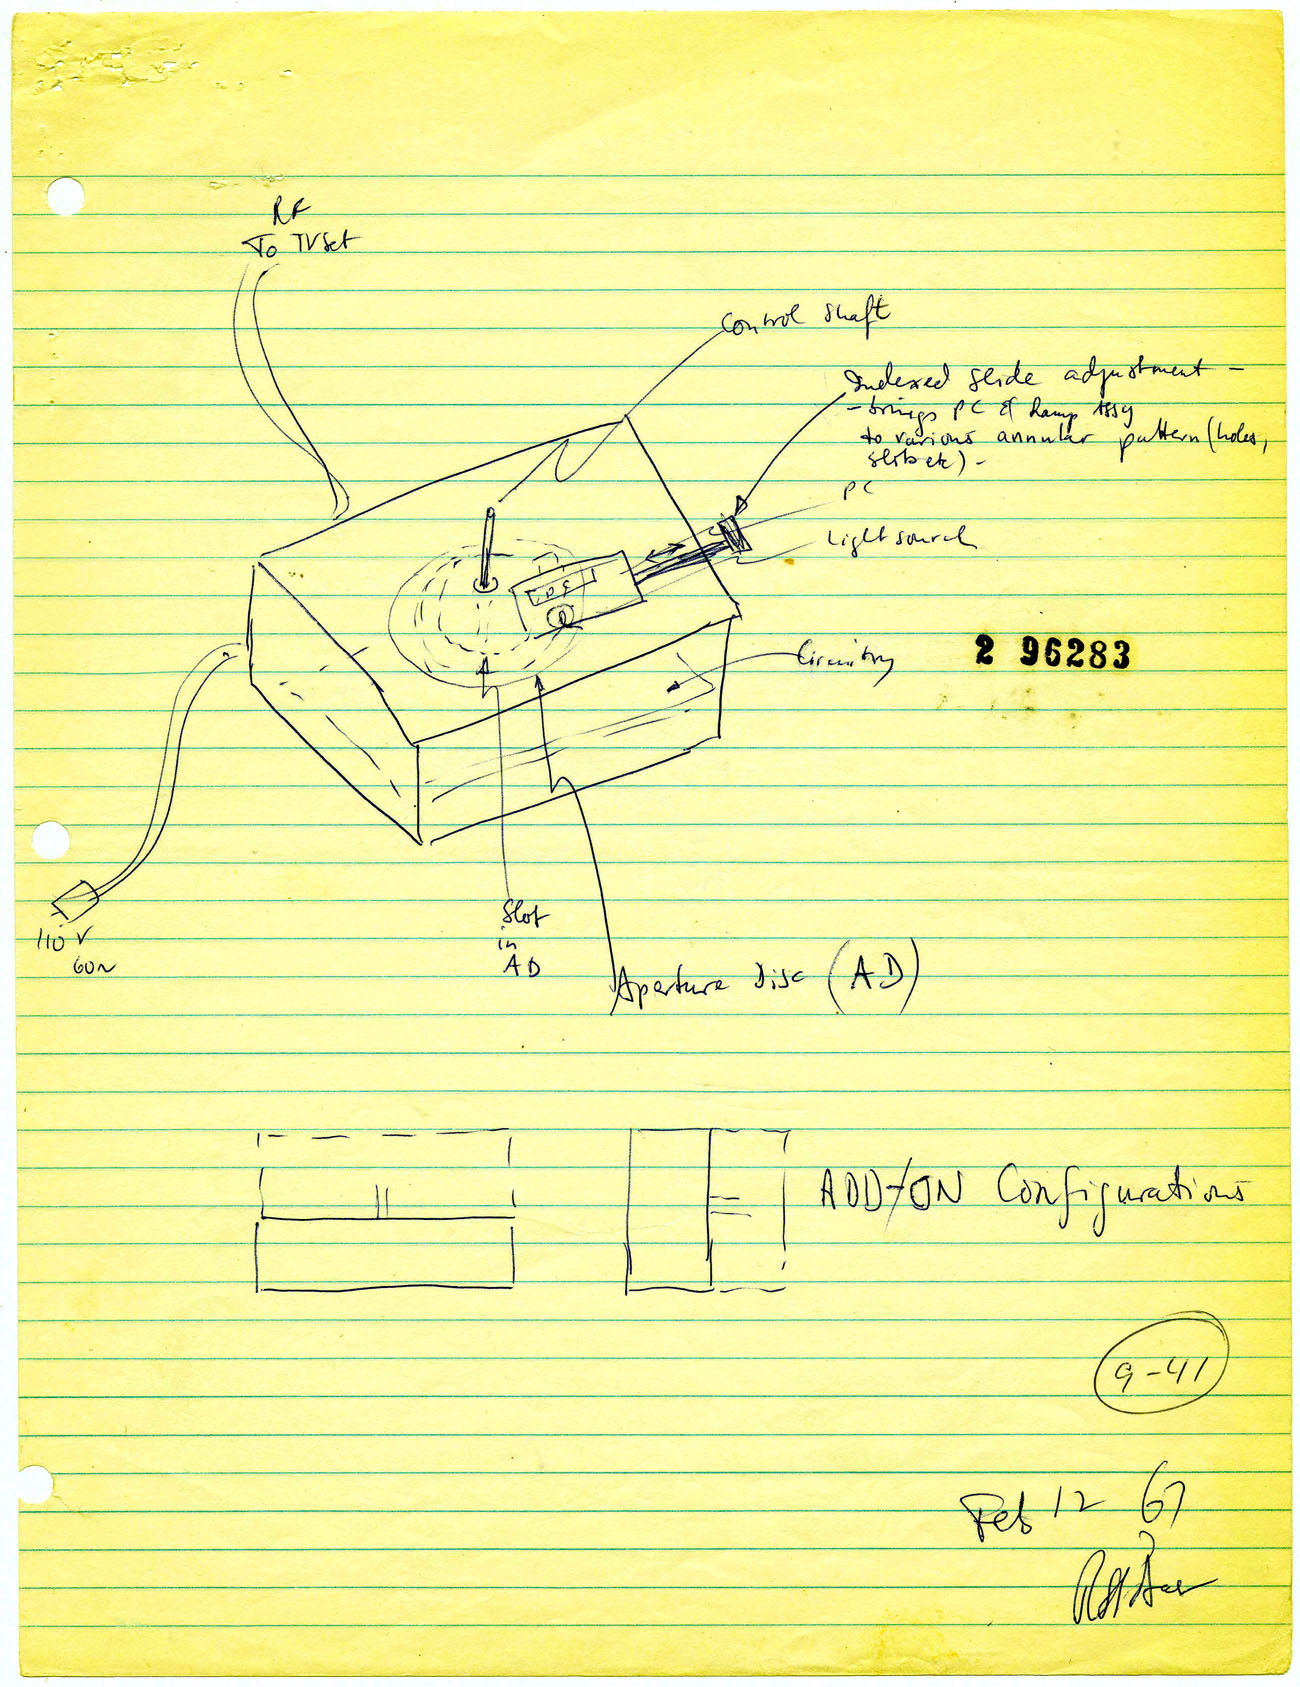 RF
To TV Set
Control Shaft
Indexed Slide adjustment -
- brings PC & Lamp Assy
to various annular pattern (holes,
slits etc) -
PC
Light source
Circuitry
2 96283
110 V
60~
Slot
in
AD
Aperture Disc (AD)
ADD-ON Configurations
9-41
Feb 12 67